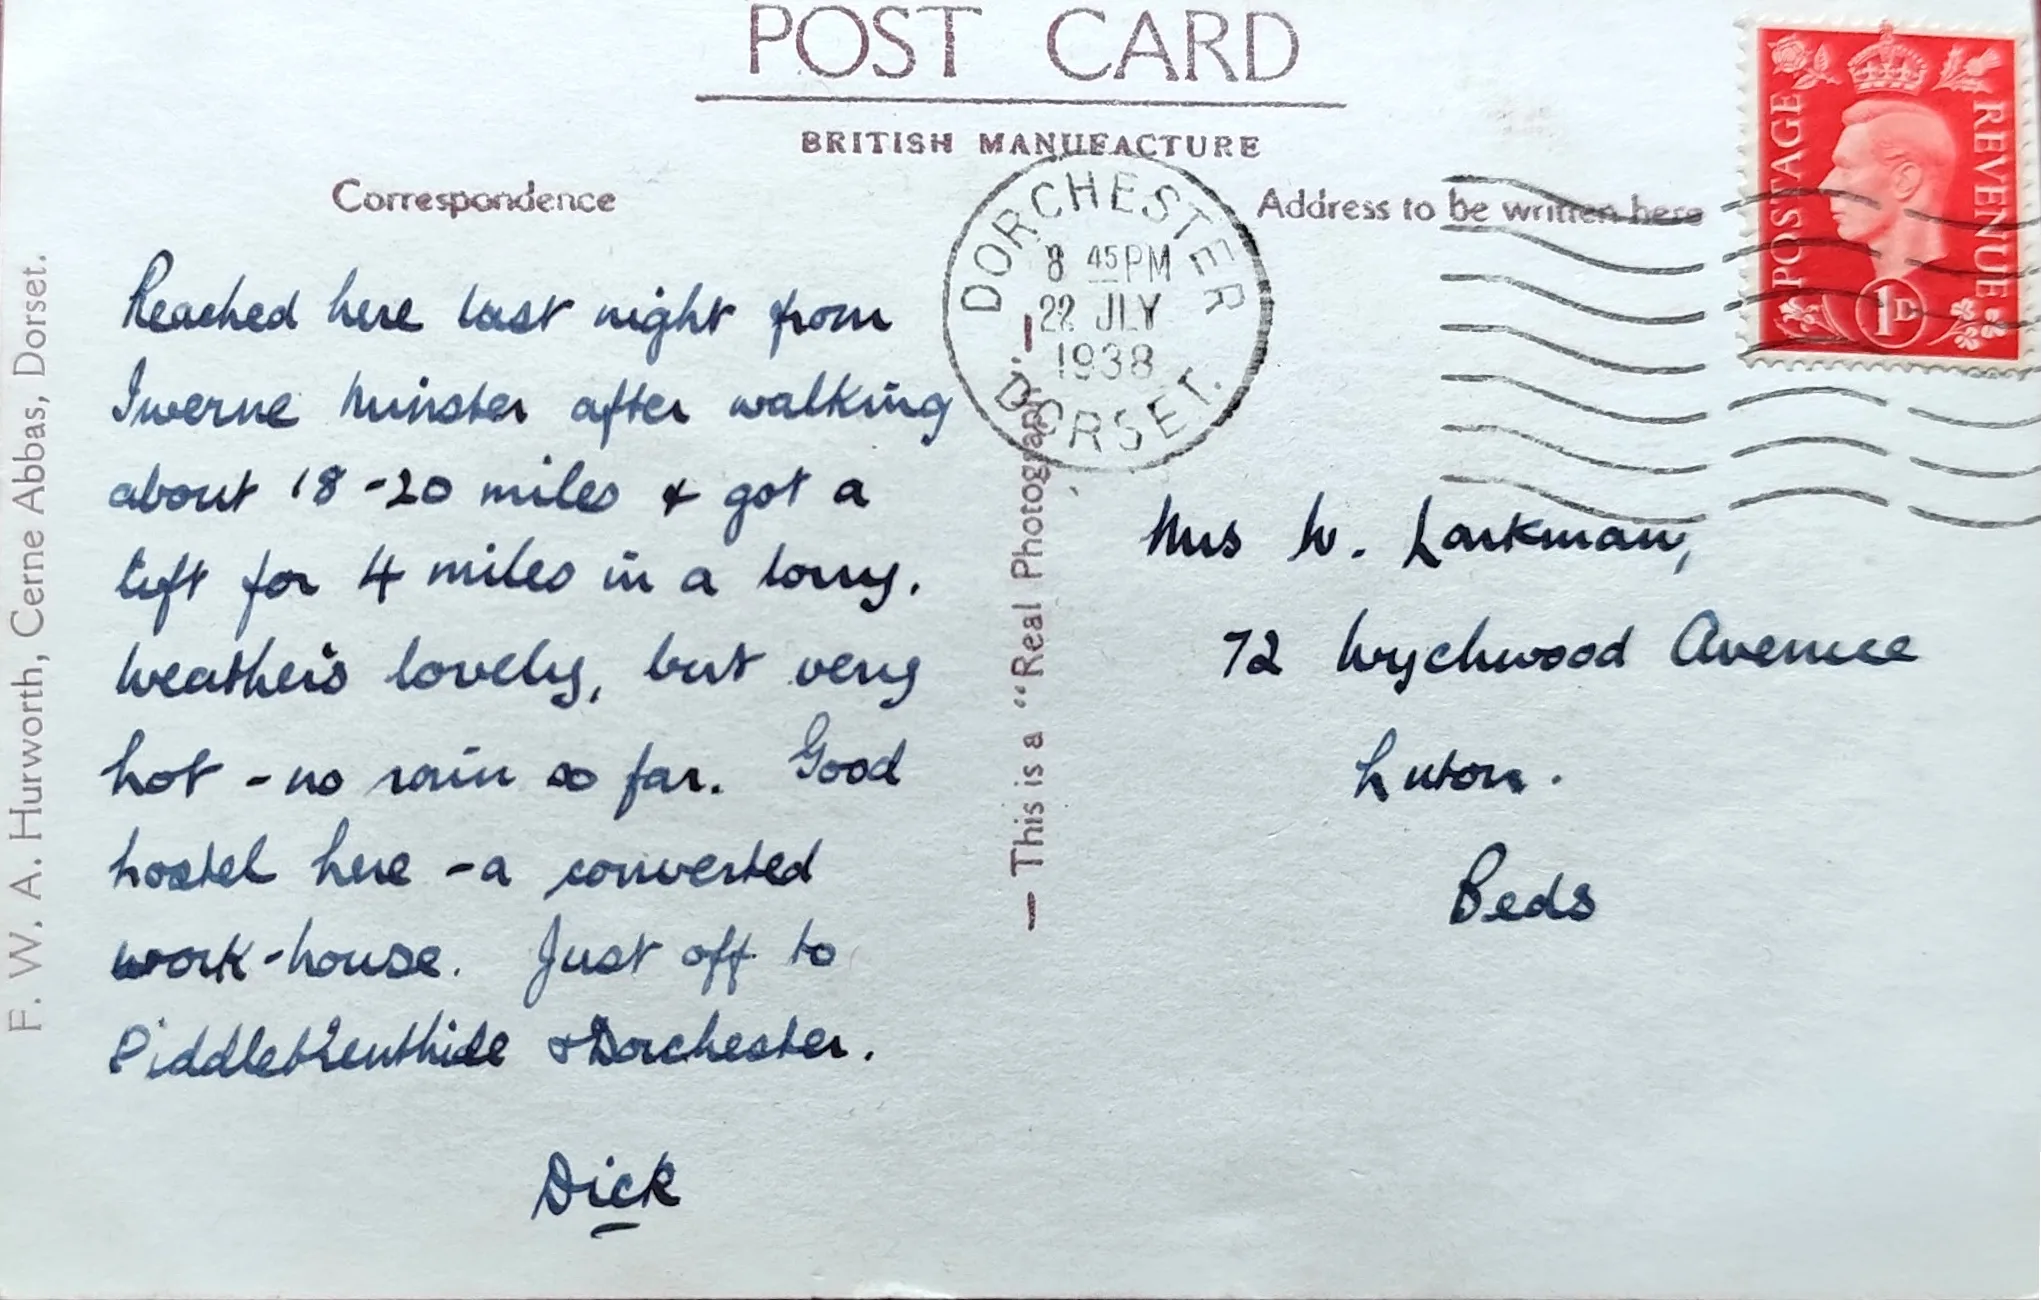 POST CARD
BRITISH MANUFACTURE
Correspondence
Address to be written here
POSTAGE REVENUE
1D
DORCHESTER
8 45 PM
22 JLY
1938
DORSET.
F. W. A. Hurworth, Cerne Abbas, Dorset.
— This is a "Real Photograph." —
Reached here last night from
Iwerne Minster after walking
about 18-20 miles & got a
lift for 4 miles in a lorry.
Weather's lovely, but very
hot - no rain so far. Good
hostel here - a converted
work-house. Just off to
Piddletrenthide & Dorchester.
Dick
Mrs W. Larkman,
72 Wychwood Avenue
Luton.
Beds